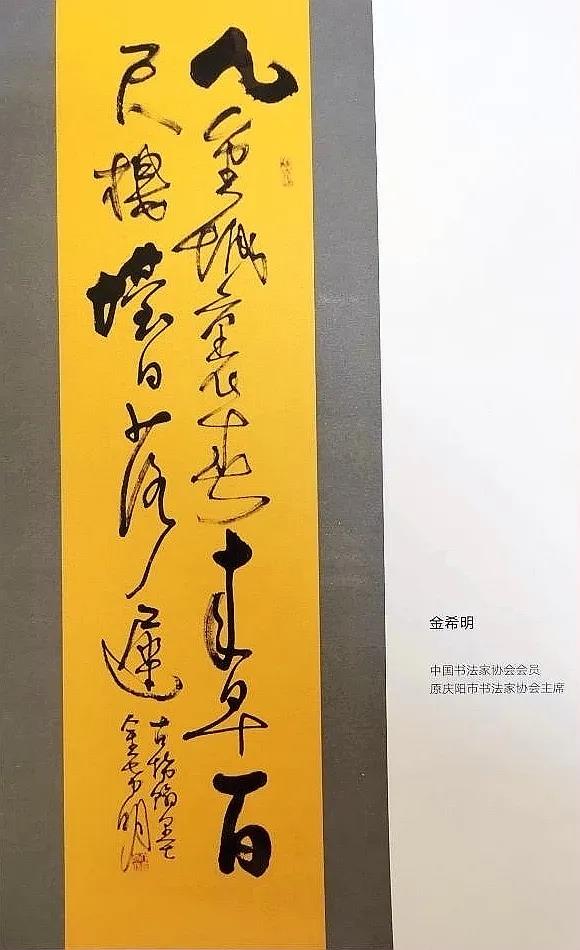 九重城裏春来早百
尺樓臺日落遲
金希明
金希明
中国书法家协会会员
原庆阳市书法家协会主席